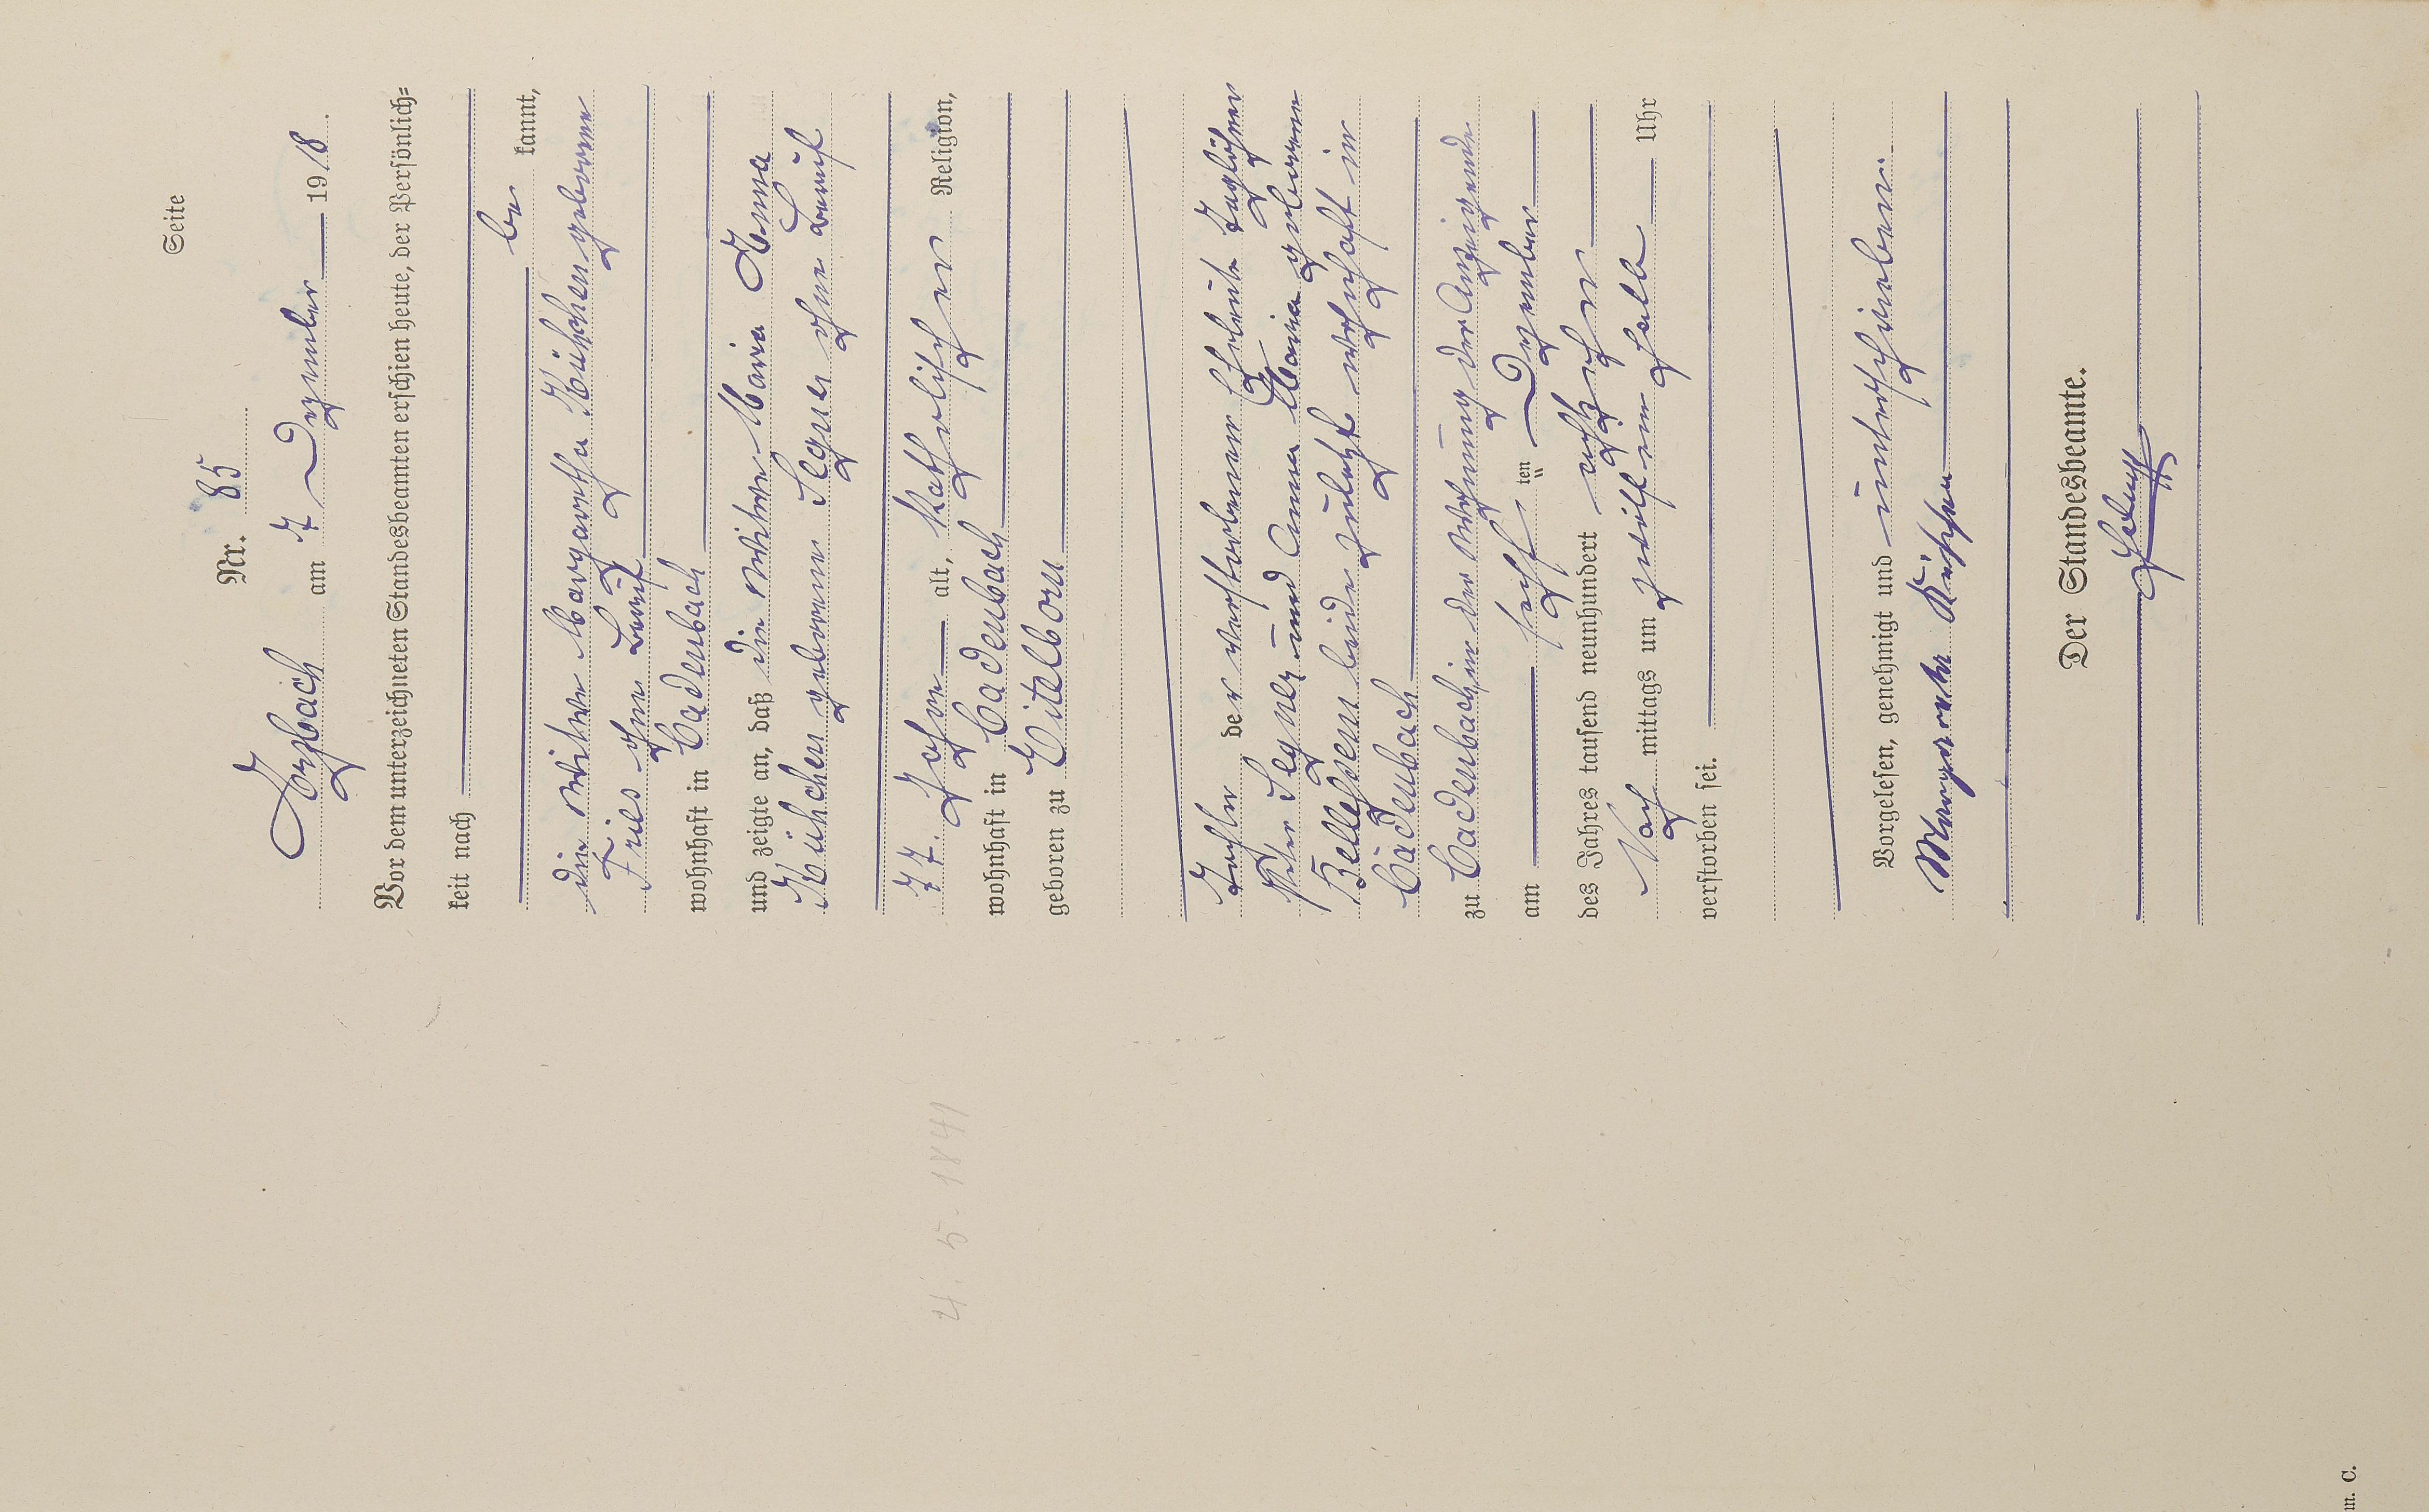 Seite
Nr. 85
Arzbach am 7 Dezember 1918.
Vor dem unterzeichneten Standesbeamten erschien heute, der Persönlich=
keit nach
be kannt,
die Witwe Margaretha Kühchen geborene
Fries ohne Beruf
wohnhaft in Cadenbach
und zeigte an, daß die Witwe Maria Anna
Kühchen geborene Legner ohne Beruf
77. Jahre alt, katholischer Religion,
wohnhaft in Cadenbach
geboren zu Eitelborn
Tochter der verstorbenen Eheleute Taglöhner
Peter Legner und Anna Maria geborenen
beide zuletzt wohnhaft in
Cadenbach
zu Cadenbach in der Wohnung der Anzeigende
am sechs ten Dezember
des Jahres tausend neunhundert achtzehn
Nach mittags um zwölf ein halb Uhr
verstorben sei.
Vorgelesen, genehmigt und unterschrieben.
Margareta Kühchen
Der Standesbeamte.
4. 5. 1841
m. C.